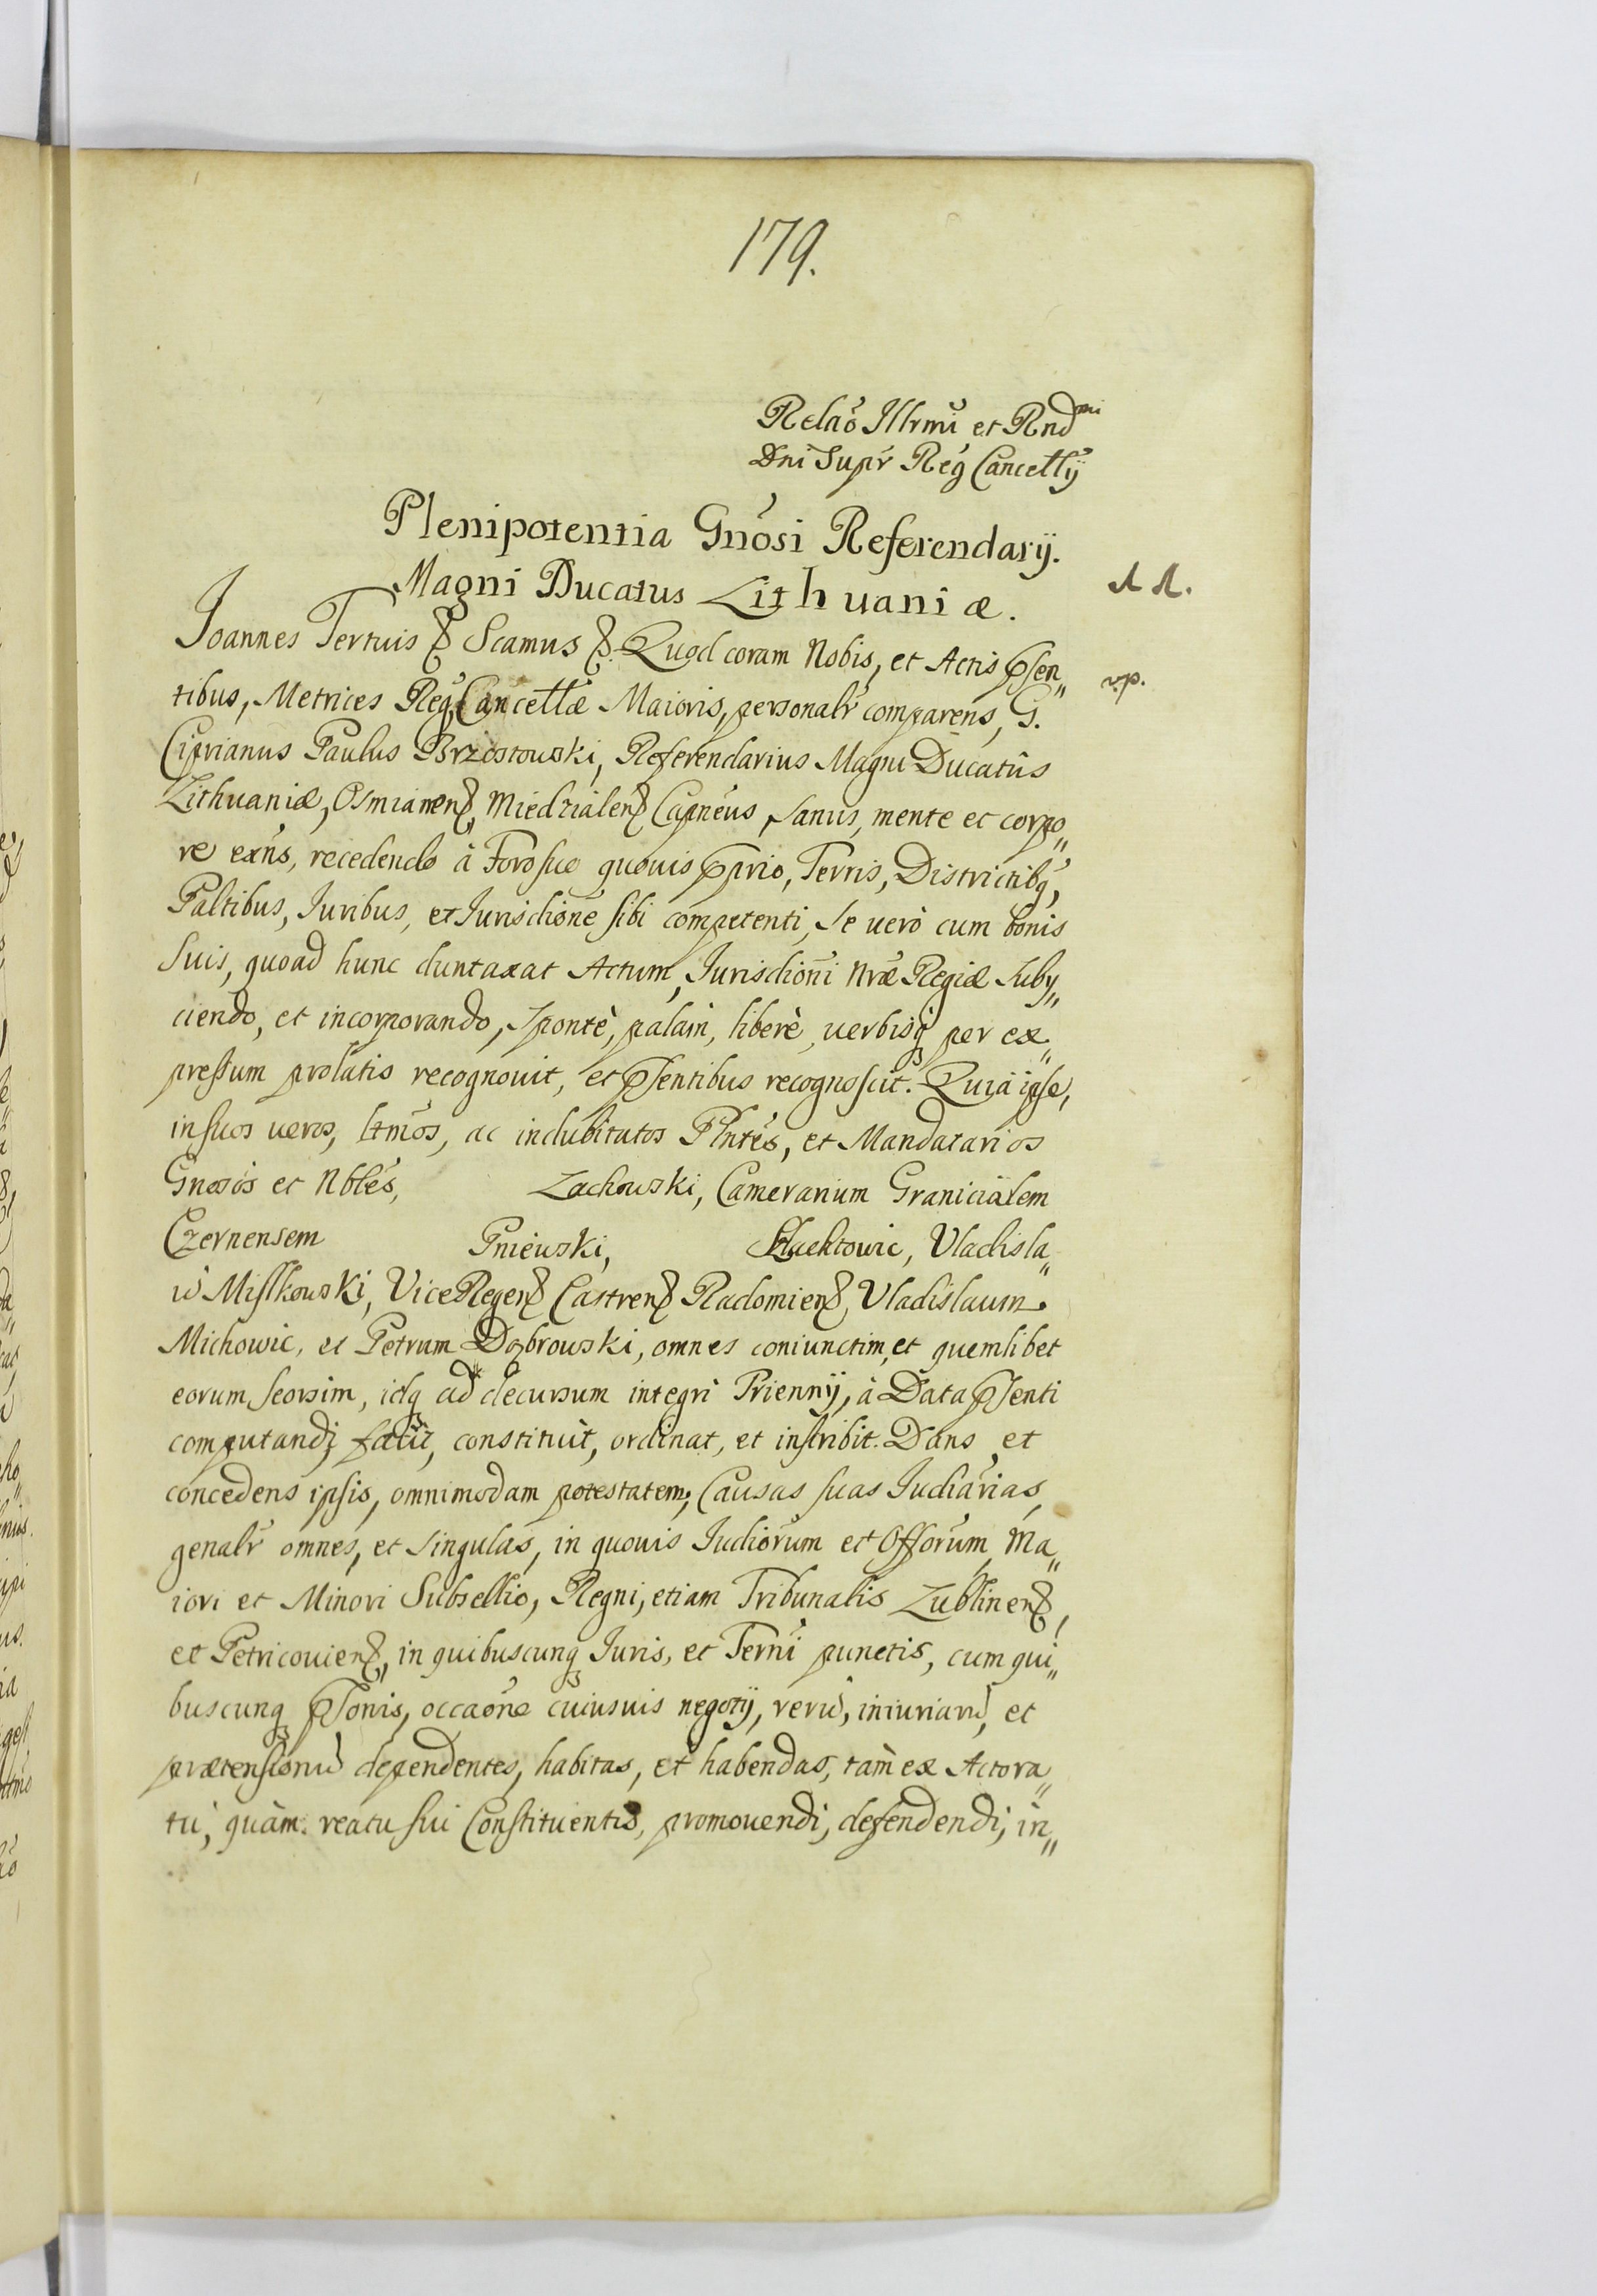 179.
Relaō Illrmi et Rnd^mi
Dni Supr Reg Cancellÿ
Plenipotentia Gnosi Referendarÿ.
Magni Ducatus Lithuaniæ.
Joannes Tertuis & Scamus &. Quod coram Nobis, et Actis Psen„
tibus, Metrices Reg Cancellæ Maioris, personalr comparens, G.
Ciprianus Paulus Brzostowski, Referendarius Magni Ducatûs
Lithuaniæ, Osmianen, Miedzialen Capneus, sanus, mente et corpo„
re exns, recedendo à Foro suo quovis Pprio, Terris, Districtibq,
Paltibus, Iuribus, et Iurisdione sibi competenti, se uerò cum bonis
suis, quoad hunc duntaxat Actum, Iurisdioni Nræ Regiæ suby„
ciendo, et incorporando, sponte, palam, liberè, uerbisq per ex„
pressum prolatis recognouit, et Psentibus recognoscit. Quia ipse,
in suos ueros, ltmos, ac indubitatos Plntes, et Mandatarios
Gnosos et Nbles, Zachowski, Camerarium Granicialem
Czernensem Pniewski, Vladisla„
ū Mislkowski, ViceRegen Castren Radomien, Vladislaum
Michowic, et Petrum Dobrowski, omnes coniunctim, et quemlibet
eorum seorsim, idq ad decursum integri Triennÿ, à Data Psenti
computandi, facit, constituit, ordinat, et inscribit. Dans et
concedens ipsis, omnimodam potestatem, Causas suas Iudiarias,
genalr omnes, et singulas, in quovis Iudiorum et Offorum, Ma„
iori et Minori Subsellio, Regni, etiam Tribunalis Lublinen,
et Petricouien, in quibuscunq Iuris, et Terni punctis, cum qui„
buscunq Psonis, occaōne cuiusuis negotÿ, rerū, iniuriarū, et
prætensionū dependentes, habitas, et habendas, tam ex Actora„
tu, quàm reatu sui Constituentis, promouendi, defendendi, in„